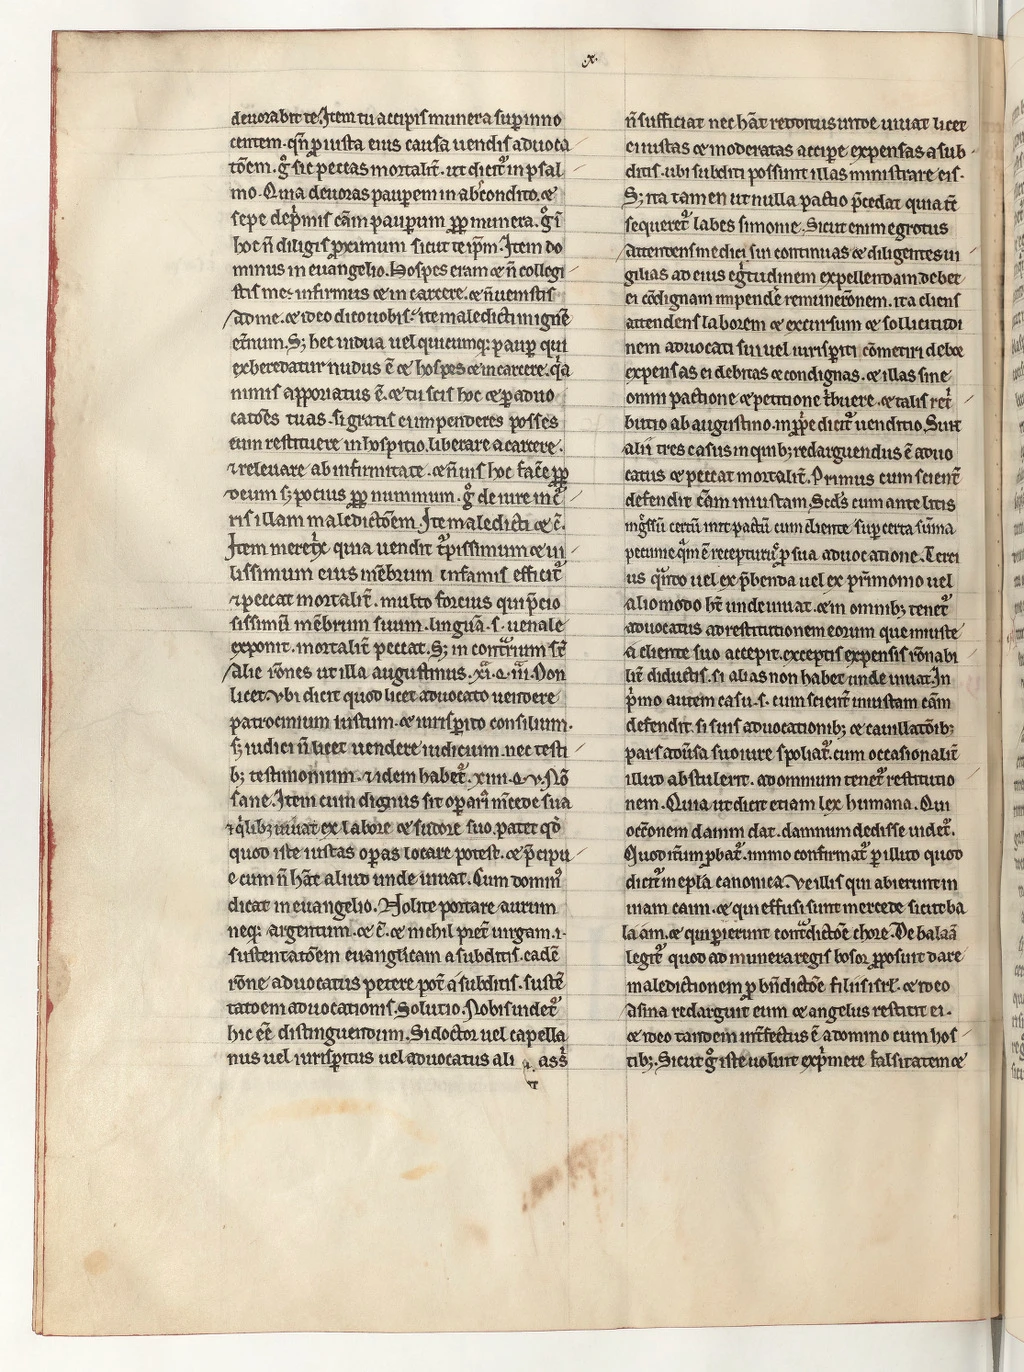 .x.
deuorabit te. Item tu accipis munera sup̱ inno
centem. qn̄ p̱ iusta eius causa uendis aduoca
tōem. gͦ sic peccas mortalit̄. ut dicit᷑ in psal
mo. Quia deuoras paup̱em in abscondito. ⁊
sepe dep̱mis cām paup̱um ꝓpͭ munera. gͦ si
hoc n̄ diligis ꝓximum sicut te ip̄m. Item do
minus in euangelio. Hospes eram ⁊ n̄ collegi
stis me. infirmus ⁊ in carcere. ⁊ n̄ uenistis
ad me. ⁊ ideo dico uobis. ite maledicti in ignē
et̄num. Sꝫ hec uidua uel quicumqꝫ paup̱ qui
exheredatur nudus ē ⁊ hospes ⁊ in carcere. qͥa
nimis apporiatus ē. ⁊ tu scis hoc ⁊ p̱ aduo
catōes tuas. si gratis eū impenderes posses
eum restituere in hospitio. liberare a carcere.
⁊ releuare ab infirmitate. ⁊ n̄ uis hoc facē ꝓpͭ
deum sꝫ pocius ꝓpͭ nummum. gͦ de iure inc̄
ris illam maledictōem. Ite maledicti ⁊ c̄.
Item meretͥx quia uendit t᷑pissimum ⁊ ui
lissimum eius mēbrum infamis efficit᷑
⁊ peccat mortalit̄. multo forcius qui p̄cio
sissimū mēbrum suum. linguā .s. uenale
exponit. mortalit̄ peccat. Sꝫ in cont̄rium st̄
alie rōnes ut illa augustinus. xi. q. iii. Non
licet. vbi dicit quod licet aduocato uendere
patrocinium iustum. ⁊ iurisp̱ito consilium.
sꝫ iudici n̄ licet uendere iudicium. nec testi
bꝫ testimonium. ⁊ idem habet᷑. xiiii. q. v. Nō
sane. Item cum dignus sit op̱ari᷑ m̄cede sua
⁊ qͥlibꝫ uiuat ex labore ⁊ sudore suo. patet qd̄
quod iste iustas op̱as locare potest. ⁊ p̄cipu
e cum n̄ hāt aliud unde uiuat. Cum domin᷒
dicat in euangelio. Nolite portare aurum
neqꝫ argentum. ⁊ c̄. ⁊ nichil p̄t uirgam. i.
sustentatōem euanglicam a subditis. eadē
rōne aduocatus petere pot̄ a subditis. sustē
tatoem aduocationis. Solutio. Nobis uidet᷑
hic eē distinguendum. Si doctor uel capella
nus uel iurisp̱itus uel aduocatus ali q͛ ass̄
n̄ sufficiat nec hāt redditus unde uiuat licet
ei iustas ⁊ moderatas accipe expensas a sub
ditis. ubi subditi possunt illas ministrare eis.
Sꝫ ita tamen ut nulla pactio p̄cedat quia t̄c
sequeret᷑ labes simonie. Sicut enim egrotus
attendens medici sui continuas ⁊ diligentes ui
gilias ad eius eg̊tudinem expellendam. debet
ei cōdignam impendē remun̄ationem. ita cliens
attendens laborem ⁊ excursum ⁊ sollicitudi
nem aduocati sui uel iurisp̱iti cōmetiri debet
expensas ei debitas ⁊ condignas. ⁊ illas sine
omni pactione ⁊ petitione t̄buere. ⁊ talis ret̄
butio ab augustino. inꝓp̱e dicit᷑ uenditio. Sunt
alii tres casus in quibꝫ redarguendus ē aduo
catus ⁊ peccat mortalit̄. Primus cum scient̄
defendit cām iniustam. Scd̄s cum ante litis
ing̊ssū certū init pactū cum cliente sup̱ certa sūma
pecunie qͣm ē recepturu᷒ p̱ sua aduocatione. Terci
us qn̄do uel ex p̄benda uel ex pͣtrimonio uel
alio modo ht̄ unde uiuat. ⁊ in omnibꝫ tenet᷑
aduocatus ad restitutionem eorum que iniuste
a cliente suo accepit. exceptis expensis rōnabi
lit̄ diductis. si alias non habet unde uiuat. In
pͥmo autem casu .s. cum scient̄ iniustam cām
defendit. si suis aduocationibꝫ ⁊ cauillatōibꝫ
pars adūsa suo iure spoliat᷑. cum occasionalit̄
illud abstulerit. ad omnium tenet᷑ restitutio
nem. Quia ut dicit etiam lex humana. Qui
occ̄onem damni dat. damnum dedisse uidet᷑.
Quod it̄um p̱bat᷑. immo confirmat᷑ p̱ illud quod
dicit᷑ in epl̄a canonica. Ve illis qui abierunt in
uiam caim. ⁊ qui effusi sunt mercede sicut ba
laam. ⁊ qui p̱ierunt cont̄dictōe chore. De balaā
legit᷑ quod ad munera regis bosor ꝓposuit dare
maledictionem p̱ bn̄dictōe filiis isrl̄. ⁊ ideo
asina redarguit eum ⁊ angelus restitit ei.
⁊ ideo tandem int̄fectus ē a domino cum hos
tibꝫ. Sicut gͦ iste uoluit expͥmere falsitatem ⁊